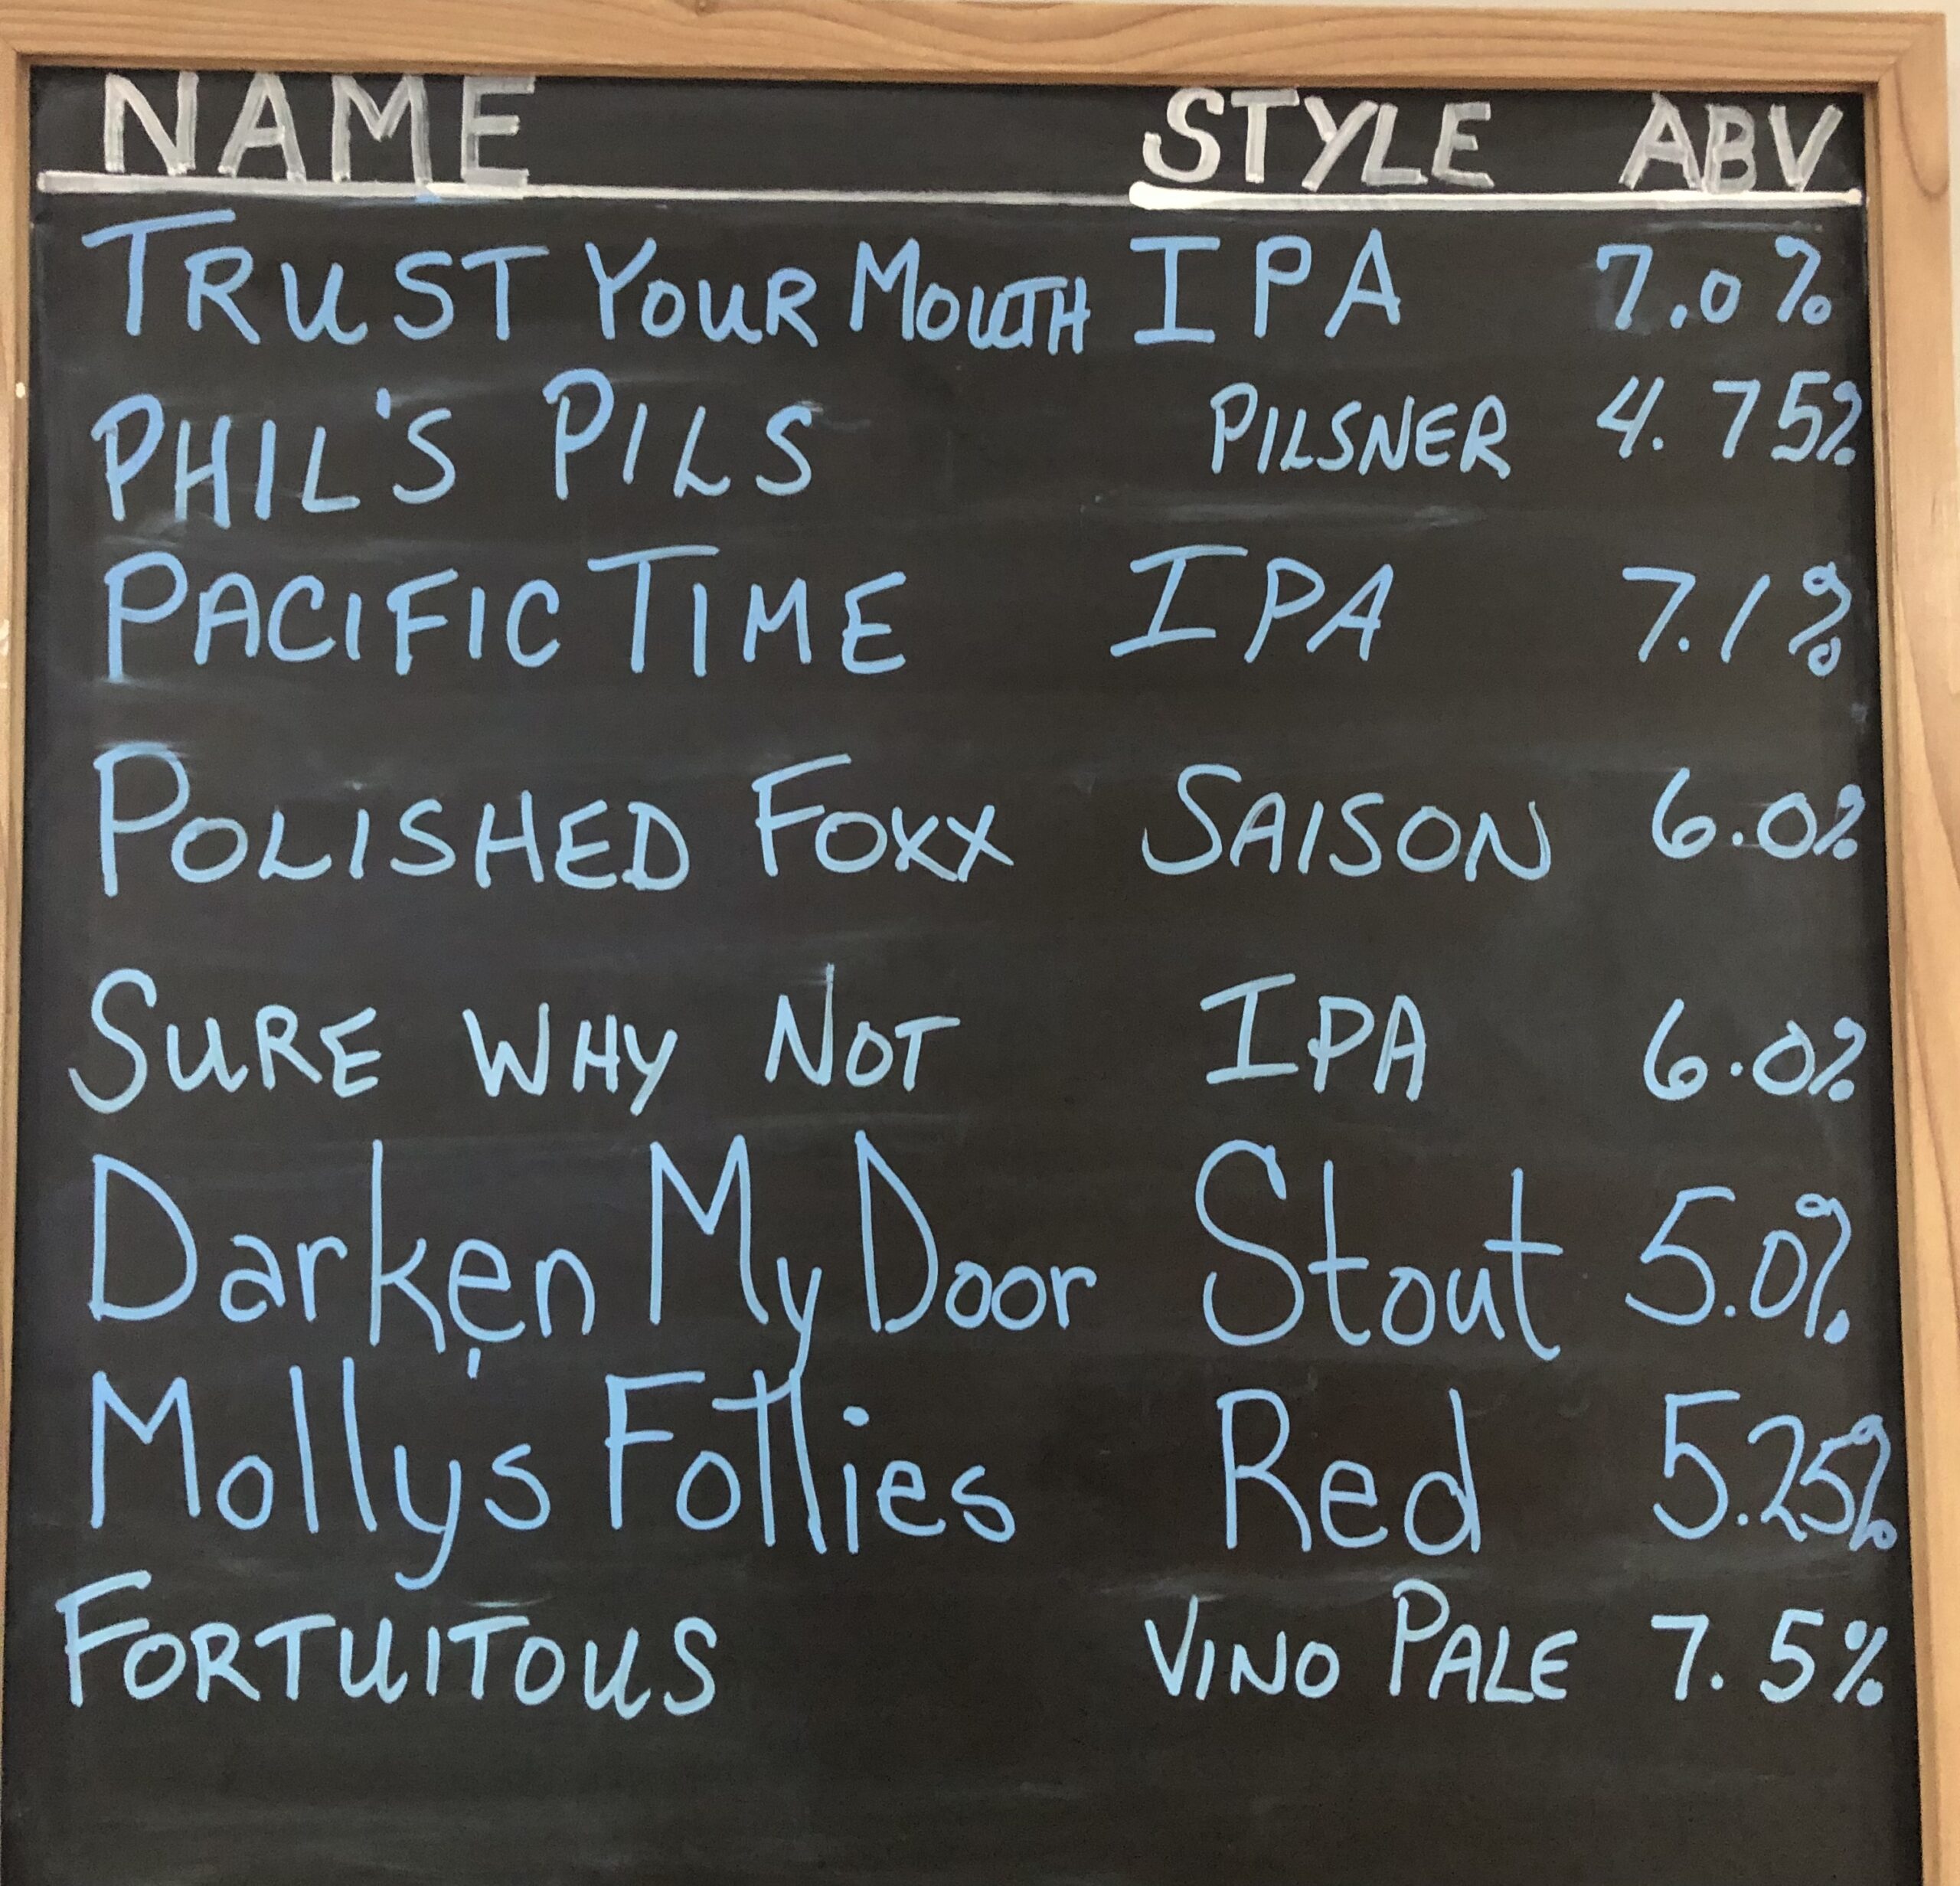 NAME STYLE ABV
TRUST YOUR MOUTH IPA 7.0%
PHIL'S PILS PILSNER 4.75%
PACIFIC TIME IPA 7.1%
POLISHED FOXX SAISON 6.0%
SURE WHY NOT IPA 6.0%
Darken My Door Stout 5.0%
Molly's Follies Red 5.25%
FORTUITOUS VINO PALE 7.5%